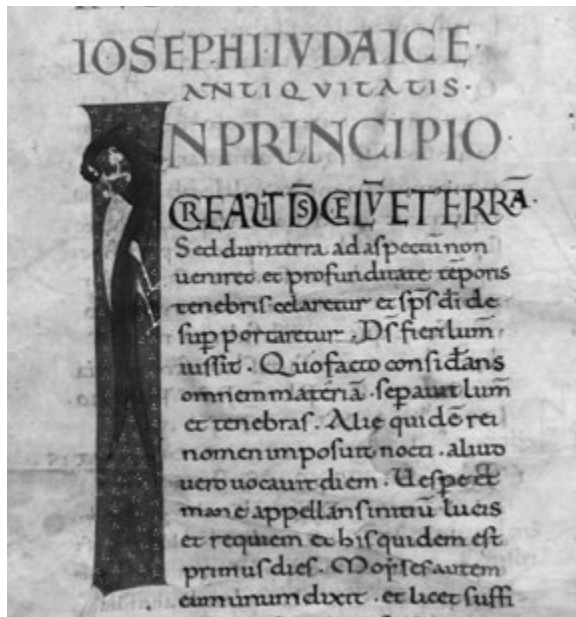 IOSEPHI·IVDAICE·
ANTIQVITATIS·
INPRINCIPIO·
CREAUIT D̄S CELV̄ ET TERRĀ·
Sed dum terra ad aspectum non
ueniret et profunditate tēporis
tenebris celaretur et sp̄s dī de
sup̱ portaretur. Ds̄ fieri lum̄
iussit. Quo facto considans
omnem materiā. sep̱auit lum̄
et tenebras. Alie quidē rei
nomen imposuit nocti. aliud
uero uocauit diem. Uesp̱e et
mane appellans initiū lucis
et requiem et his quidem est
primus dies. Moyses autem
eum unum dixit. et licet suffi